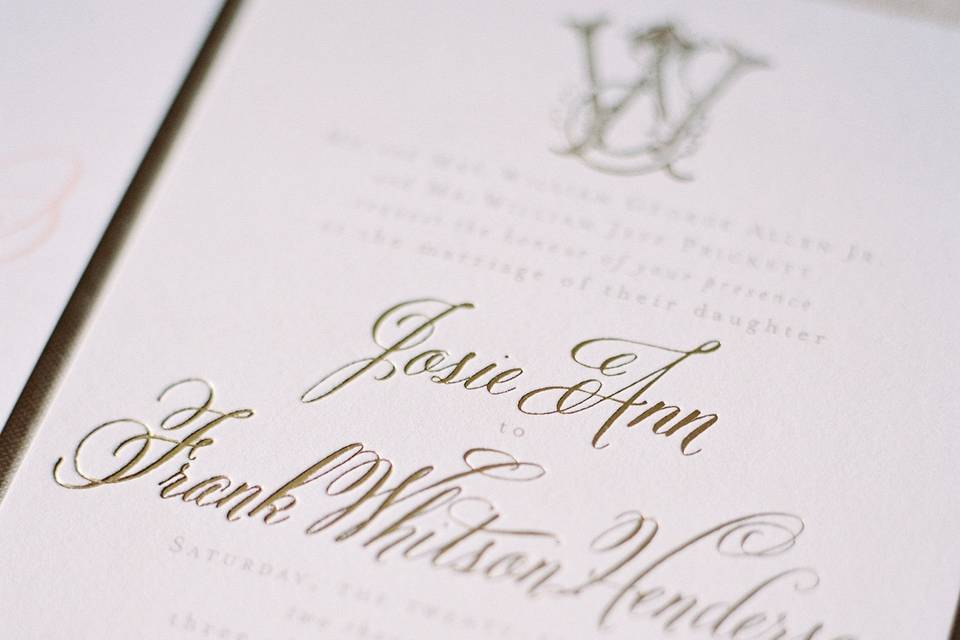 Mr. and Mrs. William George Allen Jr.
and Mr. William Jeff Prickett
request the honour of your presence
at the marriage of their daughter
Josie Ann
to
Frank Whitson
Saturday, the twenty
two thous
three